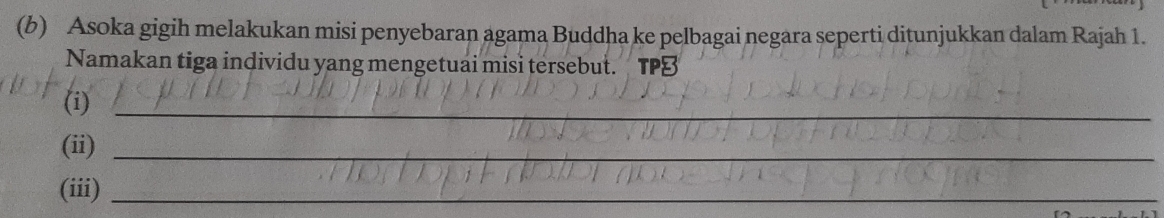 (b) Asoka gigih melakukan misi penyebaran agama Buddha ke pelbagai negara seperti ditunjukkan dalam Rajah 1.
Namakan tiga individu yang mengetuai misi tersebut. TP3
(i)
(ii)
(iii)